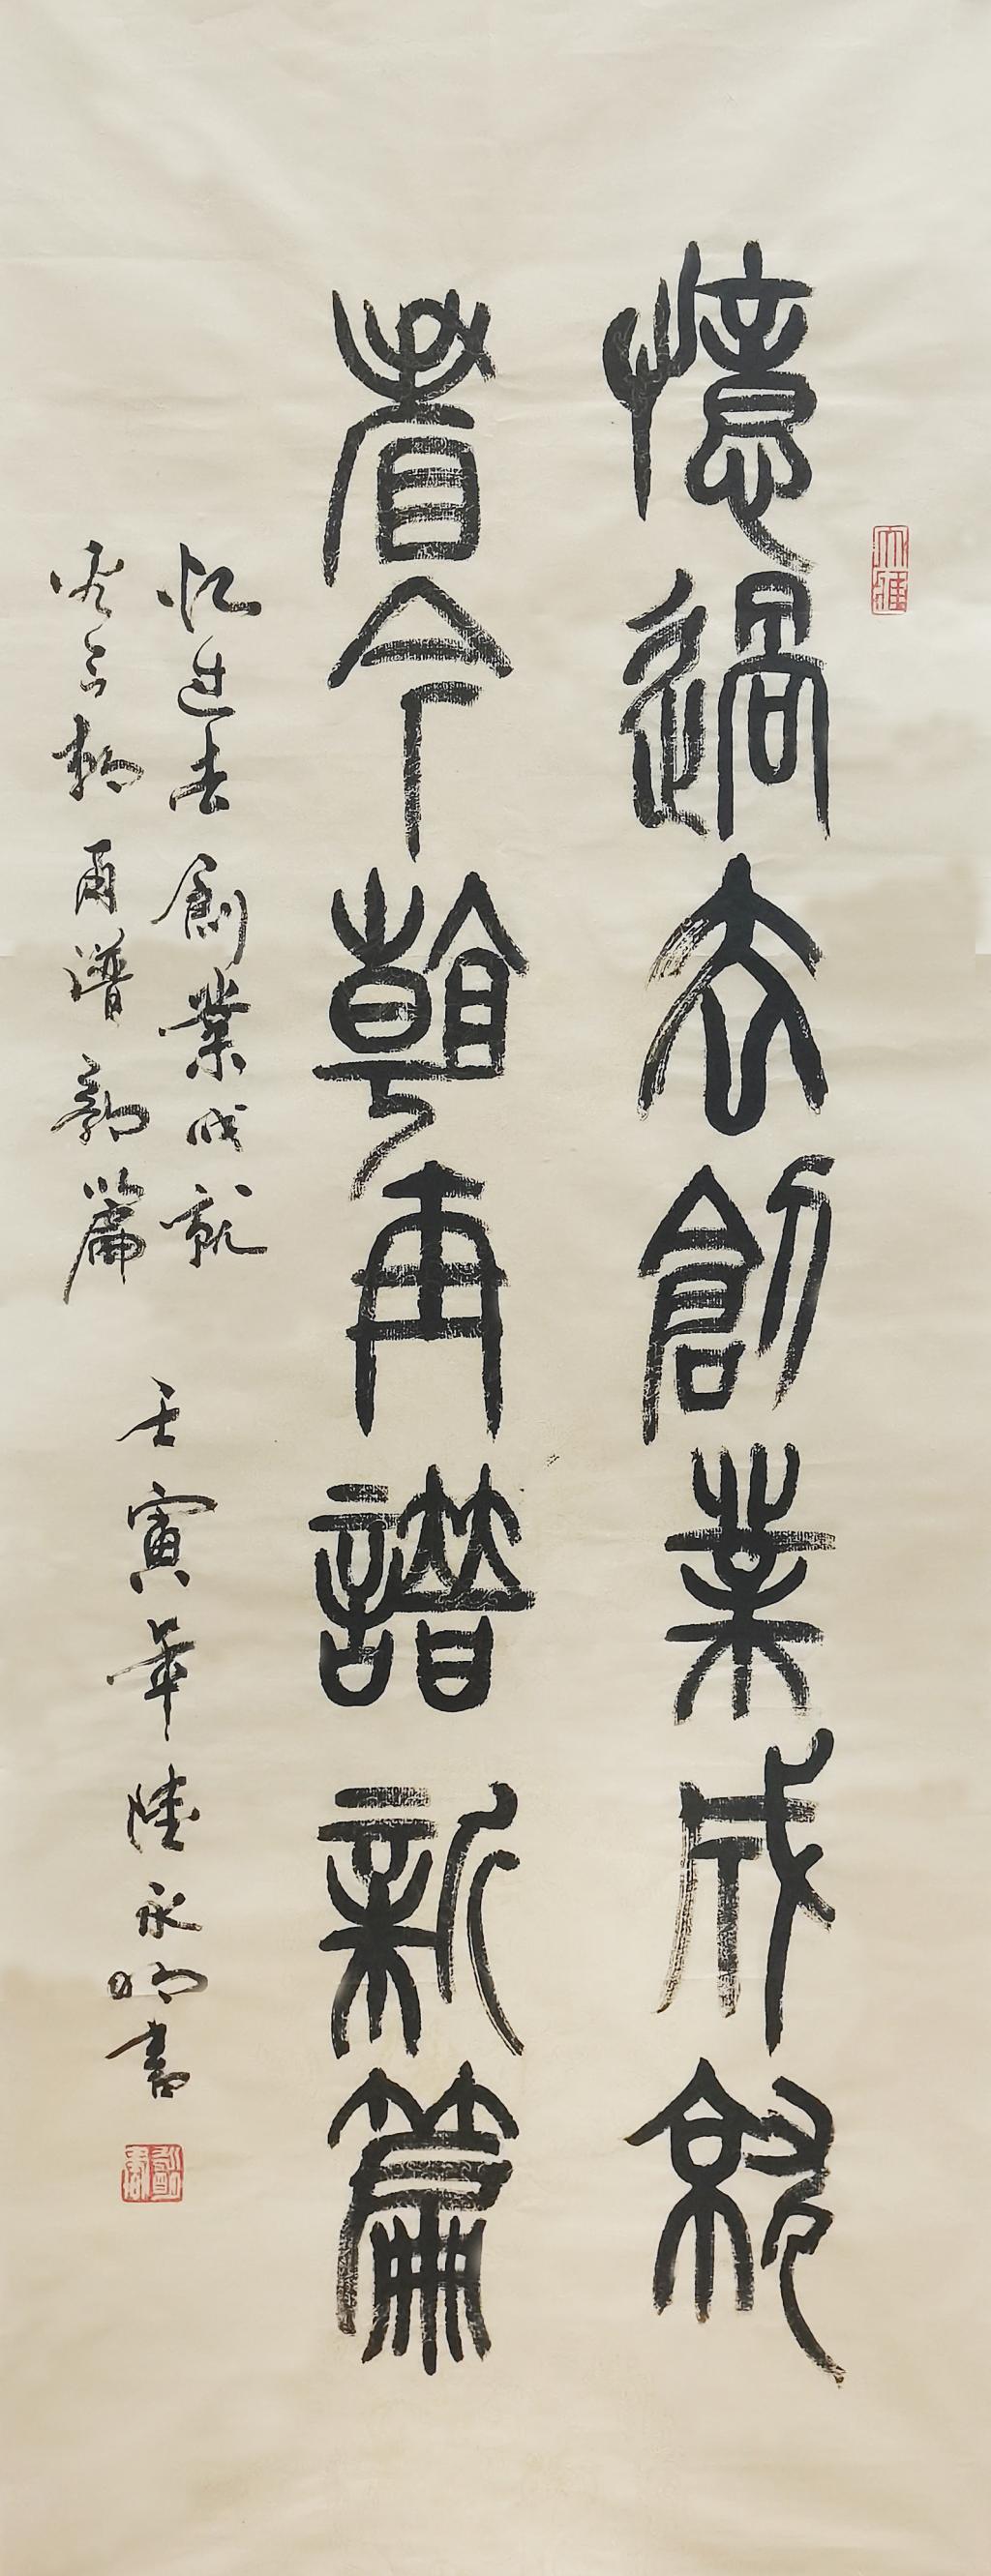 憶過去創業成就
看今朝再譜新篇
忆过去創業成就
看今朝再譜新篇
壬寅年陸永明書